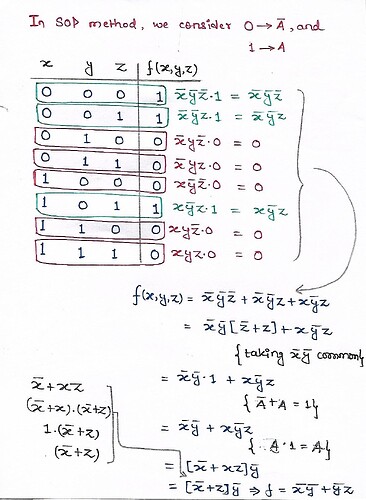 In SOP method, we consider 0 → Ā, and
1 → A
x y z f(x,y,z)
0 0 0 1 x̄ȳz̄·1 = x̄ȳz̄
0 0 1 1 x̄ȳz·1 = x̄ȳz
0 1 0 0 x̄yz̄·0 = 0
0 1 1 0 x̄yz·0 = 0
1 0 0 0 xȳz̄·0 = 0
1 0 1 1 xȳz·1 = xȳz
1 1 0 0 xyz·0 = 0
1 1 1 0 xyz·0 = 0
f(x,y,z) = x̄ȳz̄ + x̄ȳz + xȳz
= x̄ȳ[z̄+z] + xȳz
{taking x̄ȳ common}
= x̄ȳ·1 + xȳz
{Ā+A = 1}
= x̄ȳ + xȳz
{∴ A·1 = A}
= [x̄+xz]ȳ
= [x̄+z]ȳ ⇒ f = x̄ȳ + ȳz
x̄+xz
(x̄+x)·(x̄+z)
1·(x̄+z)
(x̄+z)